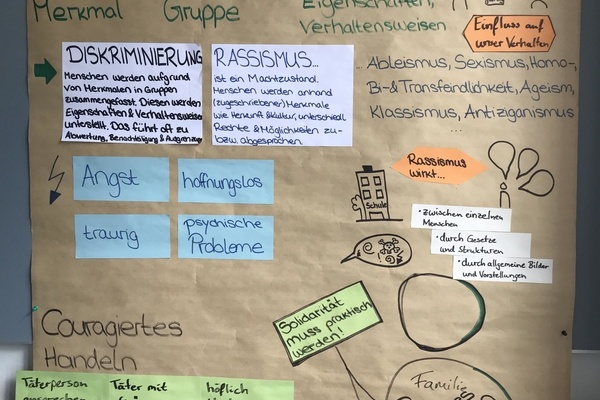 Merkmal Gruppe Eigenschaften,
Verhaltensweisen
Einfluss auf
unser Verhalten
DISKRIMINIERUNG
Menschen werden aufgrund
von Merkmalen in Gruppen
zusammengefasst. Diesen werden
Eigenschaften & Verhaltensweisen
unterstellt. Das führt oft zu
Abwertung, Benachteiligung & Ausgrenzung
RASSISMUS...
ist ein Machtzustand.
Menschen werden anhand
(zugeschriebener) Merkmale
wie Herkunft & Kultur, unterschiedl.
Rechte & Möglichkeiten zu-
bzw. abgesprochen.
... Ableismus, Sexismus, Homo-,
Bi- & Transfeindlichkeit, Ageism,
Klassismus, Antiziganismus
...
Angst
hoffnungslos
traurig
psychische
Probleme
Schule
Rassismus
wirkt...
• zwischen einzelnen
Menschen
• durch Gesetze
und Strukturen
• durch allgemeine Bilder
und Vorstellungen
Solidarität
muss praktisch
werden!
Couragiertes
Handeln
Familie
Täterperson
Täter mit
höflich